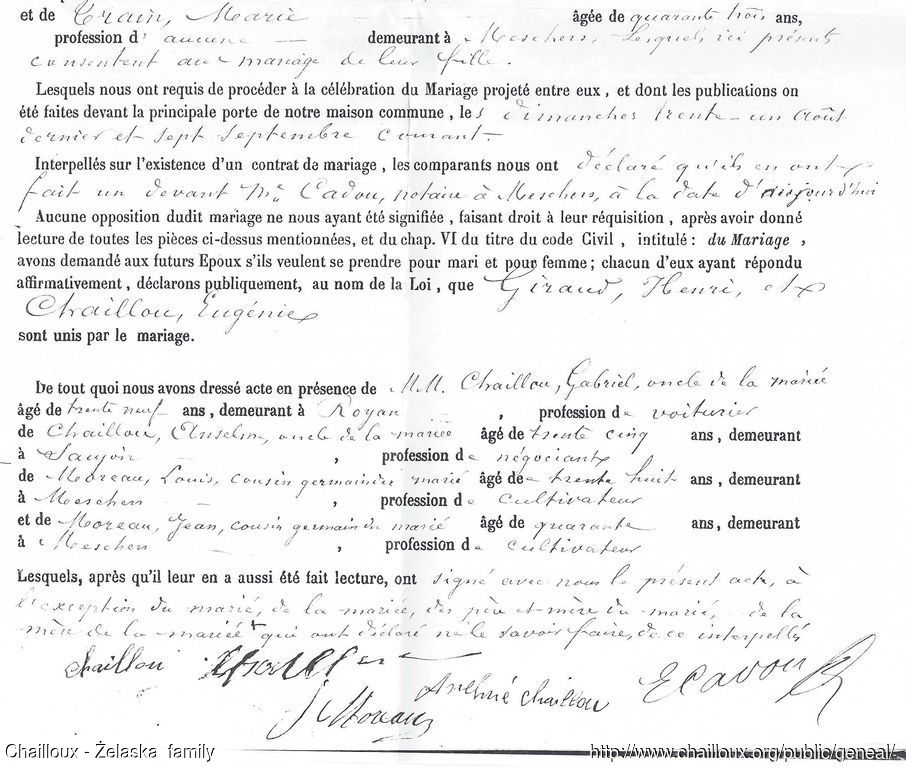 et de Train, Marie — âgée de quarante trois ans,
profession d' aucune — demeurant à Meschers, Lesquels ici présents
consentent au mariage de leur fille.
Lesquels nous ont requis de procéder à la célébration du Mariage projeté entre eux, et dont les publications on
été faites devant la principale porte de notre maison commune, les dimanches trente-un août
dernier et sept septembre courant —
Interpellés sur l'existence d'un contrat de mariage, les comparants nous ont déclaré qu'ils en ont
fait un devant Me Cadou, notaire à Meschers, à la date d'aujourd'hui
Aucune opposition dudit mariage ne nous ayant été signifiée, faisant droit à leur réquisition, après avoir donné
lecture de toutes les pièces ci-dessus mentionnées, et du chap. VI du titre du code Civil, intitulé: du Mariage,
avons demandé aux futurs Epoux s'ils veulent se prendre pour mari et pour femme; chacun d'eux ayant répondu
affirmativement, déclarons publiquement, au nom de la Loi, que Giraud, Henri, et
Chaillou, Eugénie
sont unis par le mariage.
De tout quoi nous avons dressé acte en présence de MM. Chaillou, Gabriel, oncle de la mariée
âgé de trente neuf ans, demeurant à Royan, profession de voiturier
de Chaillou, Anselme, oncle de la mariée âgé de trente cinq ans, demeurant
à Saujon, profession de négociant
de Moreau, Louis, cousin germain du marié âgé de trente huit ans, demeurant
à Meschers —, profession de cultivateur
et de Moreau, Jean, cousin germain du marié âgé de quarante ans, demeurant
à Meschers —, profession de cultivateur
Lesquels, après qu'il leur en a aussi été fait lecture, ont signé avec nous le présent acte, à
l'exception du marié, de la mariée, des père et mère du marié, de la
mère de la mariée qui ont déclaré ne le savoir faire, de ce interpellés
Chaillou
Anselme Chaillou
E Cadou
J Moreau
Chailloux - Żelaska family
http://www.chailloux.org/public/geneal/